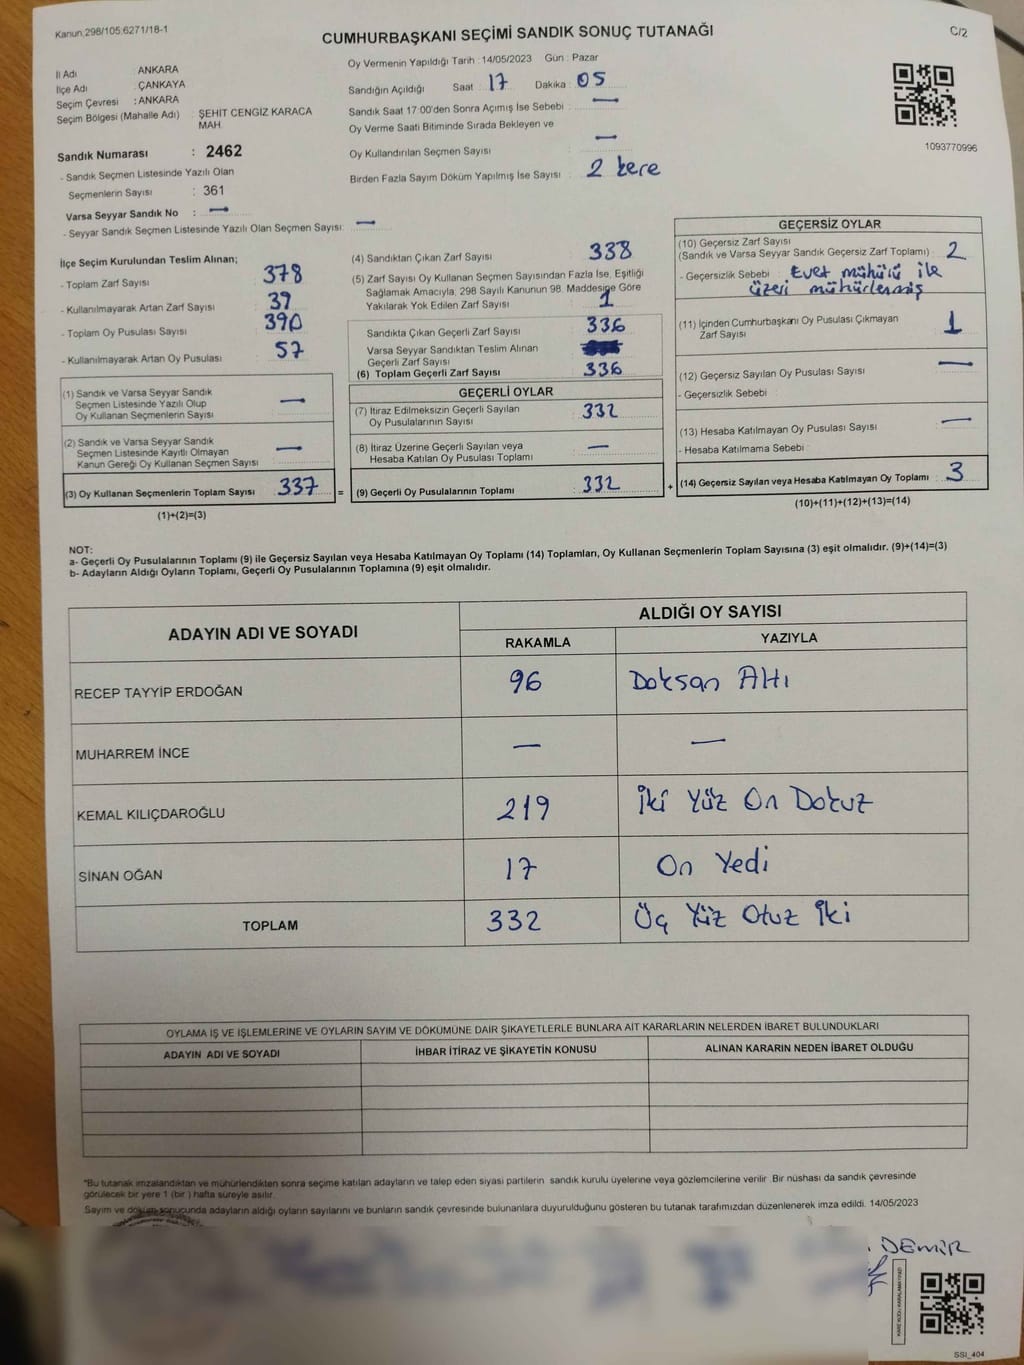 Kanun.298/105;6271/18-1
CUMHURBAŞKANI SEÇİMİ SANDIK SONUÇ TUTANAĞI
C/2
İl Adı : ANKARA
İlçe Adı : ÇANKAYA
Seçim Çevresi : ANKARA
Seçim Bölgesi (Mahalle Adı) : ŞEHİT CENGİZ KARACA
MAH.
Sandık Numarası : 2462
- Sandık Seçmen Listesinde Yazılı Olan
Seçmenlerin Sayısı : 361
Varsa Seyyar Sandık No : —
- Seyyar Sandık Seçmen Listesinde Yazılı Olan Seçmen Sayısı: —
Oy Vermenin Yapıldığı Tarih : 14/05/2023 Gün : Pazar
Sandığın Açıldığı Saat : 17 Dakika : 05
Sandık Saat 17:00'den Sonra Açımış İse Sebebi : —
Oy Verme Saati Bitiminde Sırada Bekleyen ve
Oy Kullandırılan Seçmen Sayısı : —
Birden Fazla Sayım Döküm Yapılmış İse Sayısı : 2 kere
1093770996
İlçe Seçim Kurulundan Teslim Alınan;
- Toplam Zarf Sayısı : 378
- Kullanılmayarak Artan Zarf Sayısı : 39
- Toplam Oy Pusulası Sayısı : 390
- Kullanılmayarak Artan Oy Pusulası : 57
(1) Sandık ve Varsa Seyyar Sandık
Seçmen Listesinde Yazılı Olup
Oy Kullanan Seçmenlerin Sayısı : —
(2) Sandık ve Varsa Seyyar Sandık
Seçmen Listesinde Kayıtlı Olmayan
Kanun Gereği Oy Kullanan Seçmen Sayısı : —
(3) Oy Kullanan Seçmenlerin Toplam Sayısı : 337 =
(1)+(2)=(3)
(4) Sandıktan Çıkan Zarf Sayısı : 338
(5) Zarf Sayısı Oy Kullanan Seçmen Sayısından Fazla İse, Eşitliği
Sağlamak Amacıyla, 298 Sayılı Kanunun 98. Maddesine Göre
Yakılarak Yok Edilen Zarf Sayısı : 1
Sandıkta Çıkan Geçerli Zarf Sayısı : 336
Varsa Seyyar Sandıktan Teslim Alınan
Geçerli Zarf Sayısı :
(6) Toplam Geçerli Zarf Sayısı : 336
GEÇERLİ OYLAR
(7) İtiraz Edilmeksizin Geçerli Sayılan
Oy Pusulalarının Sayısı : 332
(8) İtiraz Üzerine Geçerli Sayılan veya
Hesaba Katılan Oy Pusulası Toplamı : —
(9) Geçerli Oy Pusulalarının Toplamı : 332 +
GEÇERSİZ OYLAR
(10) Geçersiz Zarf Sayısı
(Sandık ve Varsa Seyyar Sandık Geçersiz Zarf Toplamı) : 2
- Geçersizlik Sebebi : Evet mühürü ile
üzeri mühürlenmiş
(11) İçinden Cumhurbaşkanı Oy Pusulası Çıkmayan
Zarf Sayısı : 1
(12) Geçersiz Sayılan Oy Pusulası Sayısı : —
- Geçersizlik Sebebi :
(13) Hesaba Katılmayan Oy Pusulası Sayısı : —
- Hesaba Katılmama Sebebi :
(14) Geçersiz Sayılan veya Hesaba Katılmayan Oy Toplamı : 3
(10)+(11)+(12)+(13)=(14)
NOT:
a- Geçerli Oy Pusulalarının Toplamı (9) ile Geçersiz Sayılan veya Hesaba Katılmayan Oy Toplamı (14) Toplamları, Oy Kullanan Seçmenlerin Toplam Sayısına (3) eşit olmalıdır. (9)+(14)=(3)
b- Adayların Aldığı Oyların Toplamı, Geçerli Oy Pusulalarının Toplamına (9) eşit olmalıdır.
ADAYIN ADI VE SOYADI
ALDIĞI OY SAYISI
RAKAMLA YAZIYLA
RECEP TAYYİP ERDOĞAN 96 Doksan Altı
MUHARREM İNCE — —
KEMAL KILIÇDAROĞLU 219 İki Yüz On Dokuz
SİNAN OĞAN 17 On Yedi
TOPLAM 332 Üç Yüz Otuz İki
OYLAMA İŞ VE İŞLEMLERİNE VE OYLARIN SAYIM VE DÖKÜMÜNE DAİR ŞİKAYETLERLE BUNLARA AİT KARARLARIN NELERDEN İBARET BULUNDUKLARI
ADAYIN ADI VE SOYADI İHBAR İTİRAZ VE ŞİKAYETİN KONUSU ALINAN KARARIN NEDEN İBARET OLDUĞU
*Bu tutanak imzalandıktan ve mühürlendikten sonra seçime katılan adayların ve talep eden siyasi partilerin sandık kurulu üyelerine veya gözlemcilerine verilir. Bir nüshası da sandık çevresinde
görülecek bir yere 1 (bir ) hafta süreyle asılır.
Sayım ve döküm sonucunda adayların aldığı oyların sayılarını ve bunların sandık çevresinde bulunanlara duyurulduğunu gösteren bu tutanak tarafımızdan düzenlenerek imza edildi. 14/05/2023
DEMİR
KARE KODU KARALAMAYINIZ!
SSI_404